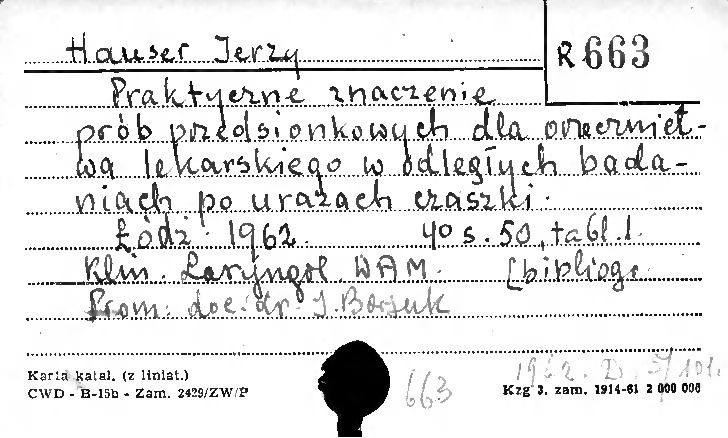 Hauser Jerzy
R 663
Praktyczne znaczenie
prób przedsionkowych dla orzecznict-
wa lekarskiego w odległych bada-
niach po urazach czaszki.
Łódź 1962. 4o s. 50, tabl. 1.
Klin. Laryngol. WAM. [bibliogr.
Prom. doc. dr. J. Borsuk
Karta katal. (z liniat.)
CWD - B-15b - Zam. 2429/ZW/P
663
1962. D. 5/101.
Kzg 3. zam. 1914-61 2 000 000